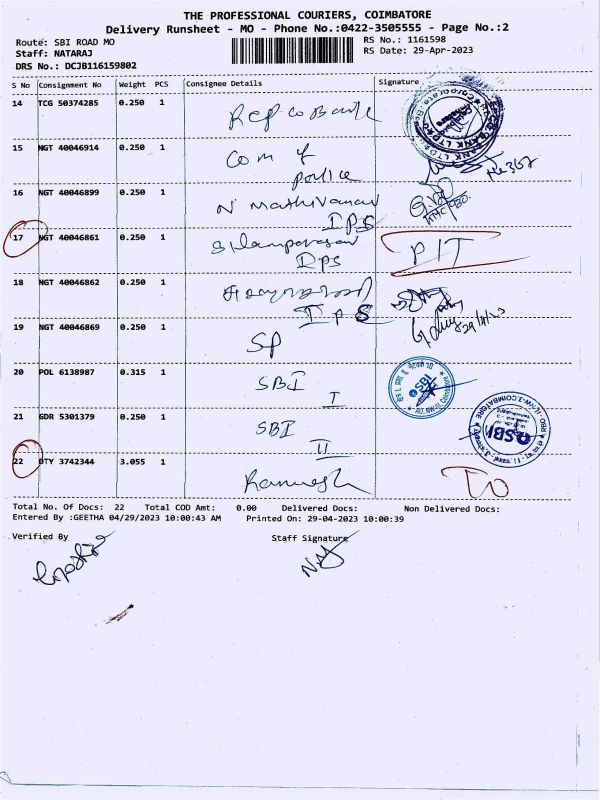 THE PROFESSIONAL COURIERS, COIMBATORE
Delivery Runsheet - MO - Phone No.:0422-3505555 - Page No.:2
Route: SBI ROAD MO
RS No.: 1161598
Staff: NATARAJ
RS Date: 29-Apr-2023
DRS No.: DCJB116159802
S No Consignment No Weight PCS Consignee Details Signature
14 TCG 50374285 0.250 1 Repco Bank
15 NGT 40046914 0.250 1 Com of
police
16 NGT 40046899 0.250 1 N Mathivanan
IPS
17 NGT 40046861 0.250 1 Silamparasan
IPS
PIT
18 NGT 40046862 0.250 1
IPS
19 NGT 40046869 0.250 1 SP
29/4/23
20 POL 6138987 0.315 1 SBI
I
21 GDR 5301379 0.250 1 SBI
II
SBI
22 DTY 3742344 3.055 1 Ramesh
TO
Total No. Of Docs: 22 Total COD Amt: 0.00 Delivered Docs: Non Delivered Docs:
Entered By :GEETHA 04/29/2023 10:00:43 AM Printed On: 29-04-2023 10:00:39
Verified By Staff Signature